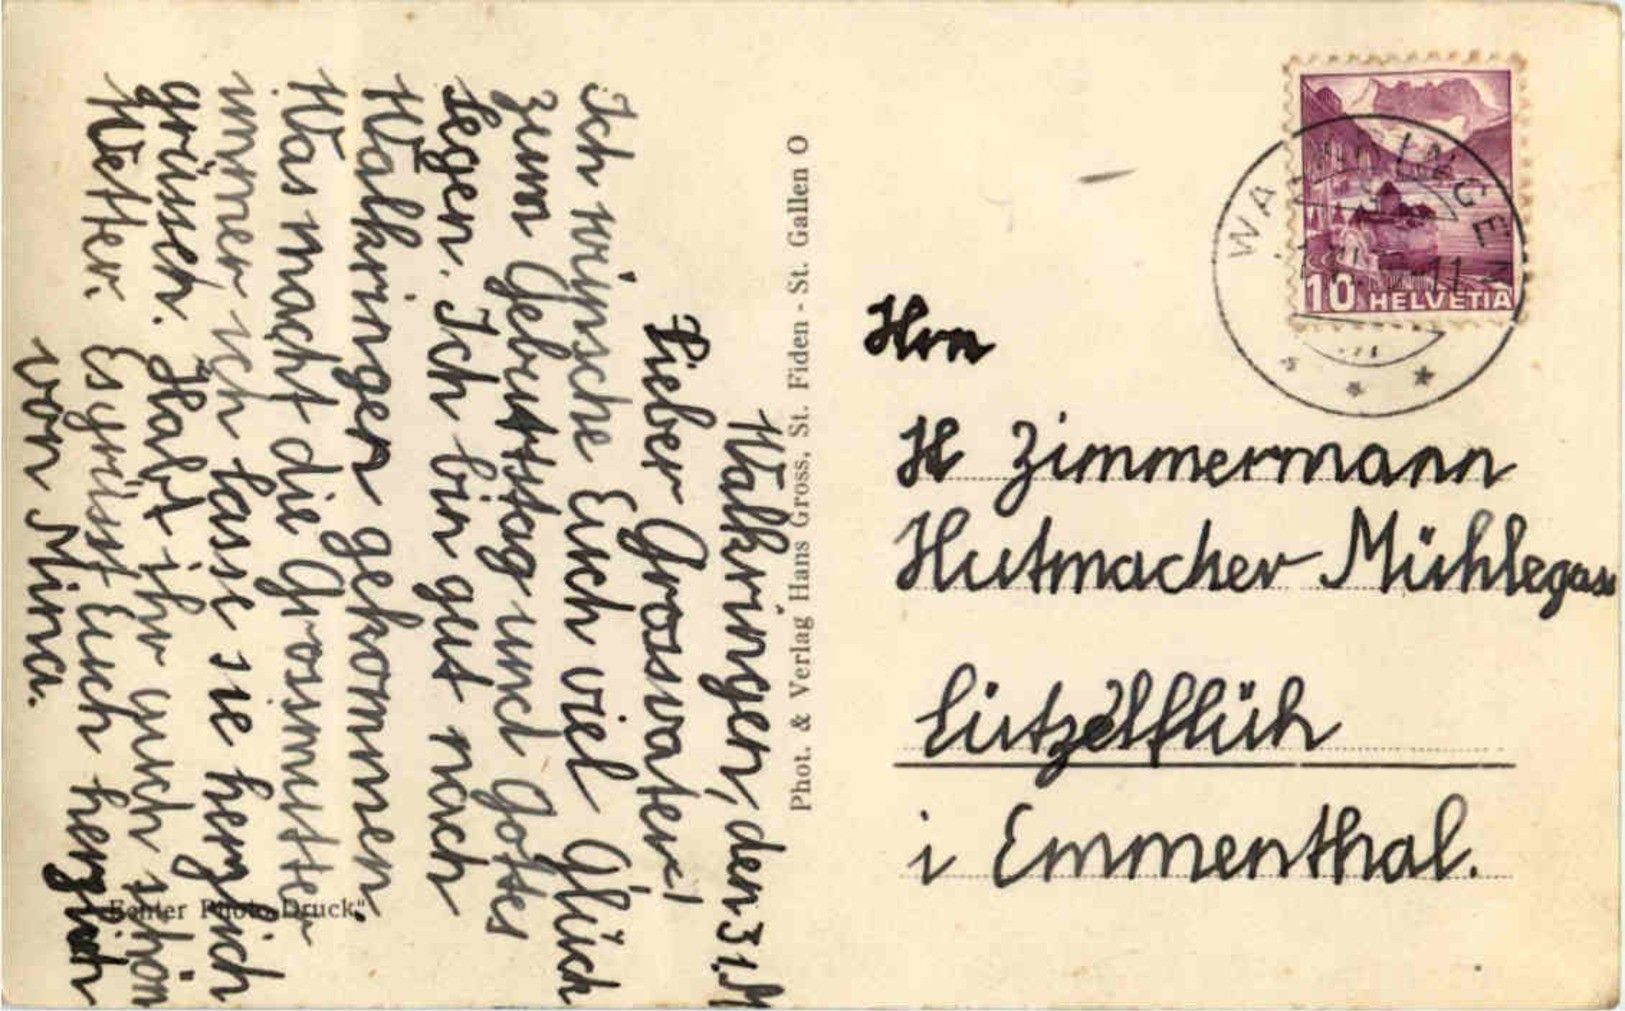 Walkringen, den 31. M
Lieber Grossvater!
Ich wünsche Euch viel Glück
zum Geburtstag und Gottes
Segen. Ich bin gut nach
Walkringen gekommen.
Was macht die Grosmutter
immer ich lasse sie herzlich
grüssen. Habt ihr auch schön
Wetter. Es grüsst Euch herzlich
von Mina.
"Echter Photo-Druck"
Phot. & Verlag Hans Gross, St. Fiden - St. Gallen O
WALKRINGEN
10 HELVETIA
Hrn
H Zimmermann
Hutmacher Mühlegass
Lützelflüh
i Emmenthal.